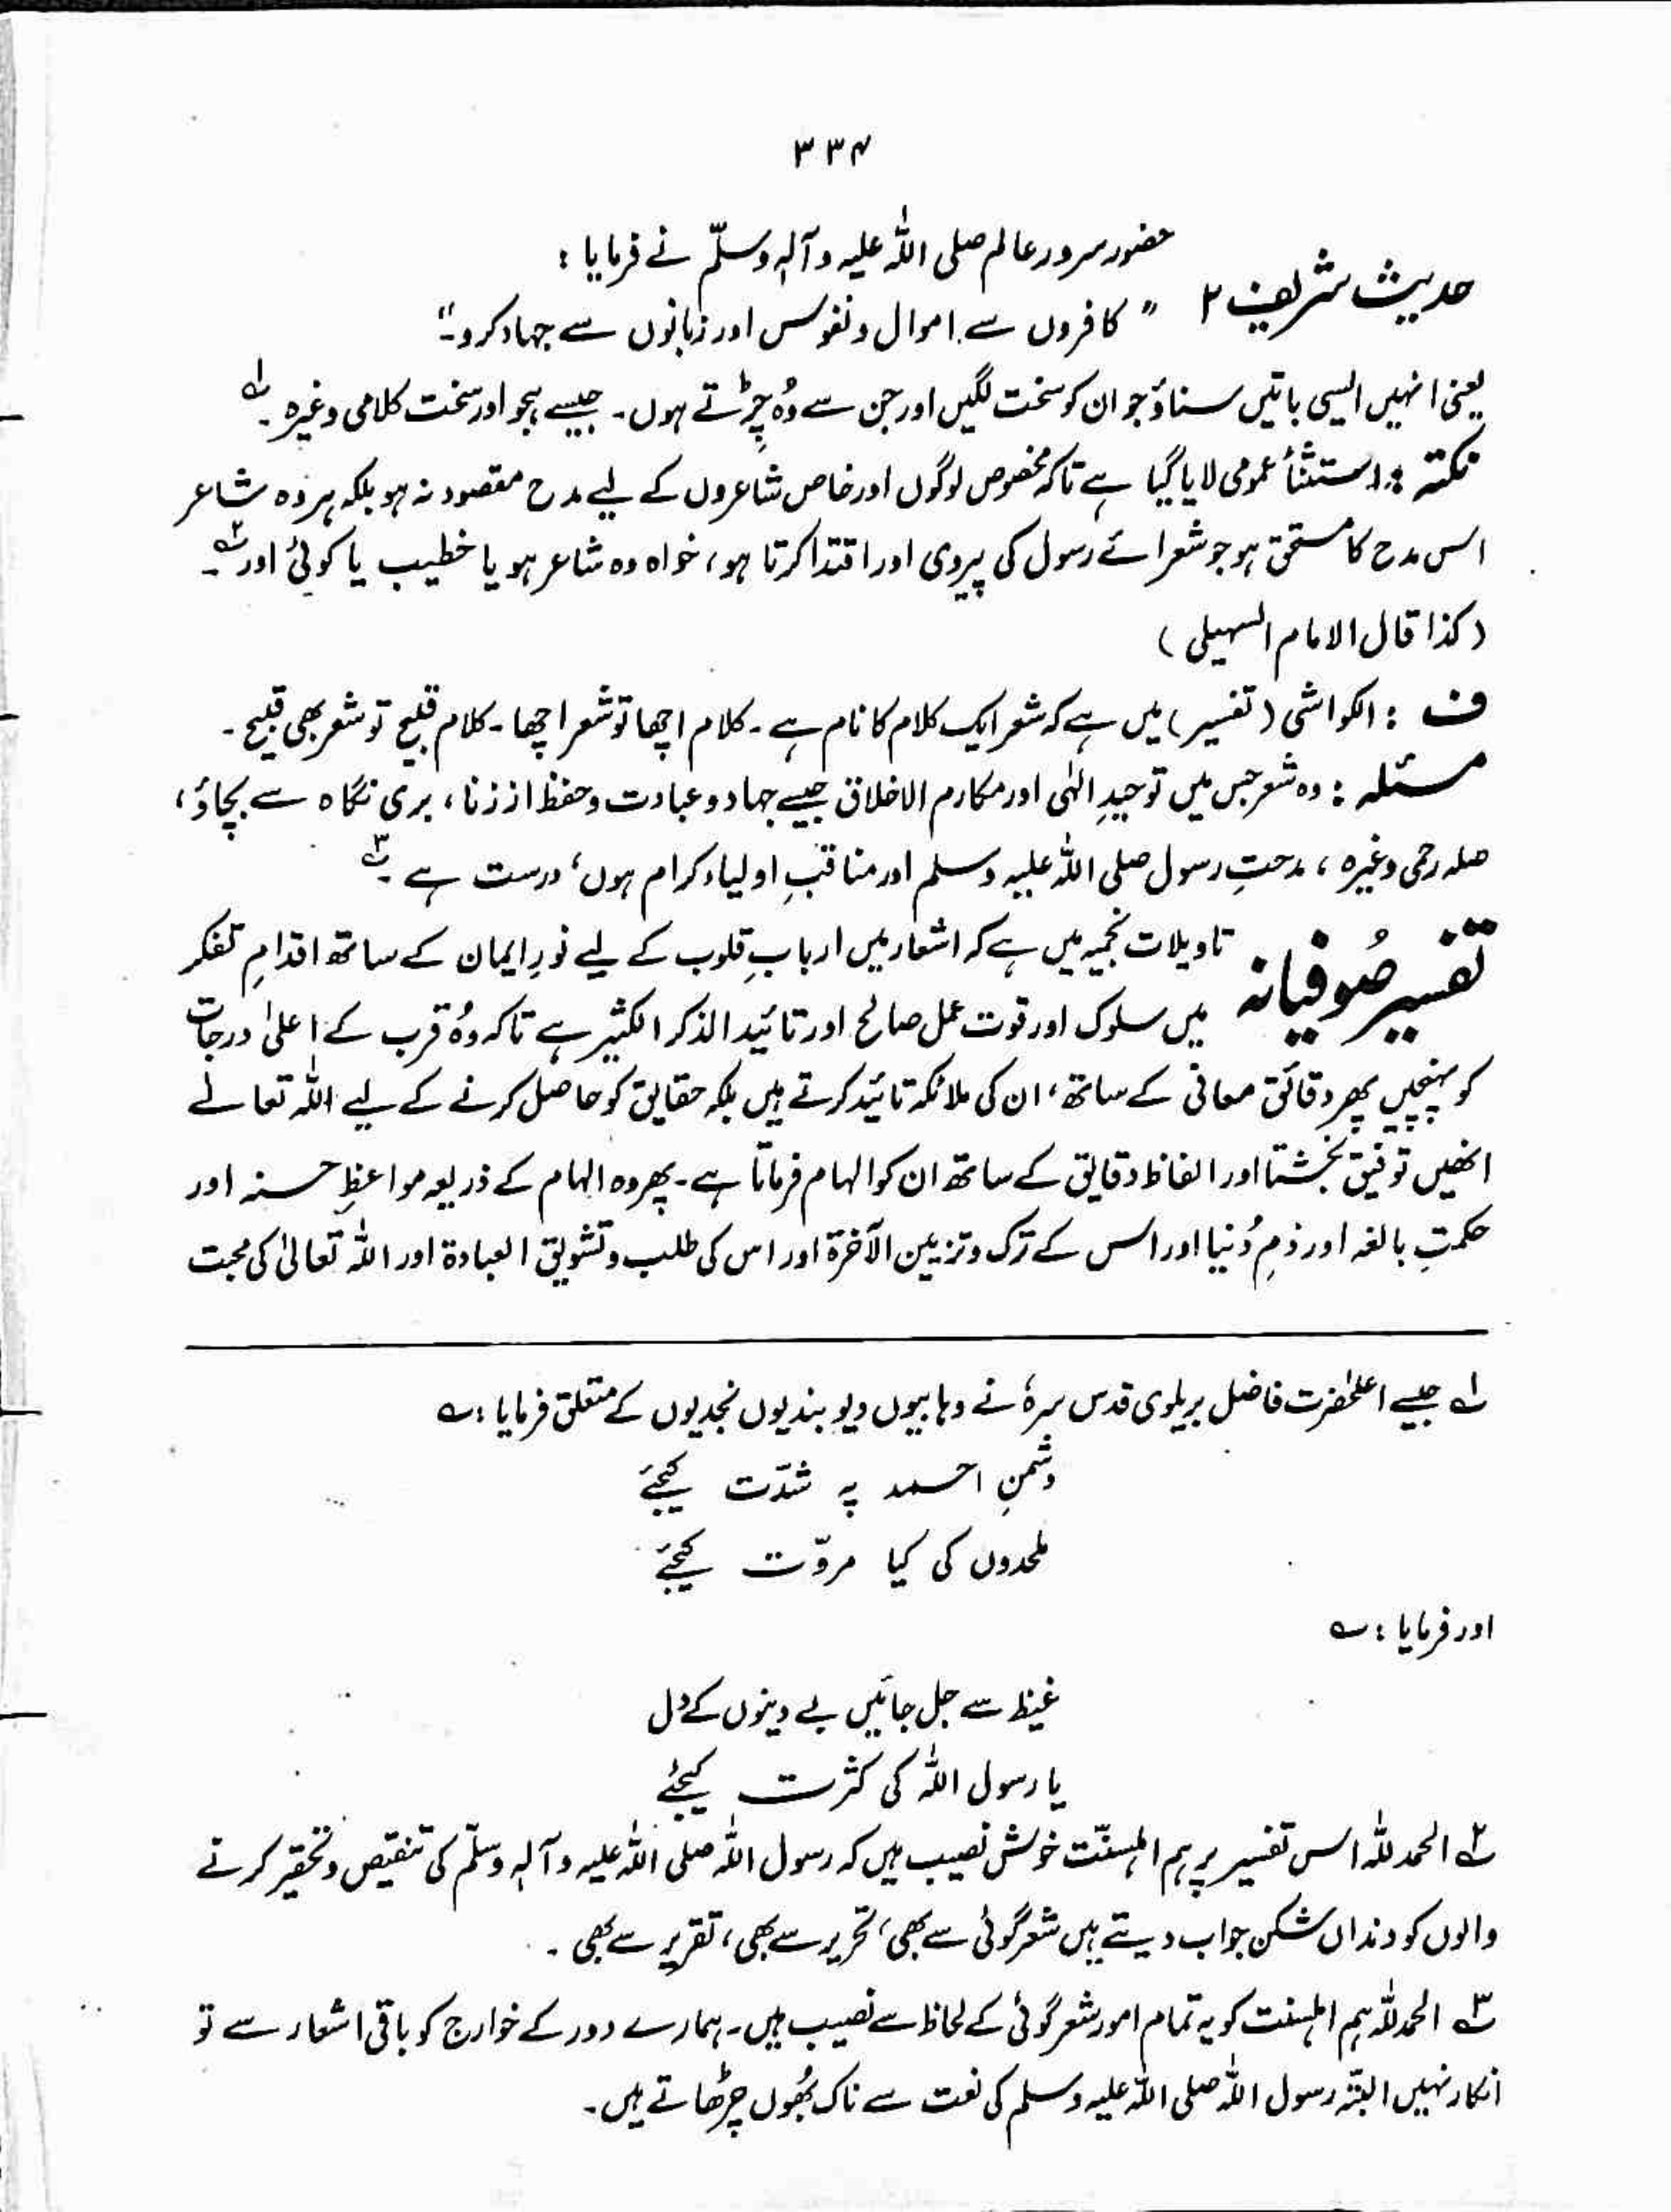 ۳۳۴
حضور سرور عالم صلی اللہ علیہ وآلہٖ وسلّم نے فرمایا :
حدیث شریف ۲ " کافروں سے اموال ونفوس اور زبانوں سے جہاد کرو۔"
یعنی انہیں ایسی باتیں سناؤ جو ان کو سخت لگیں اور جن سے وُہ چِڑتے ہوں۔ جیسے ہجو اور سخت کلامی وغیرہ۔ ؎۱
نکتہ : استثنأ عمومی لایا گیا ہے تاکہ مخصوص لوگوں اور خاص شاعروں کے لیے مدح مقصود نہ ہو بلکہ ہر وہ شاعر
اس مدح کا مستحق ہو جو شعرائے رسول کی پیروی اور اقتدا کرتا ہو، خواہ وہ شاعر ہو یا خطیب یا کوئی اور۔ ؎۲
(کذا قال الامام السہیلی)
ف : الکواشی (تفسیر) میں ہے کہ شعر ایک کلام کا نام ہے۔ کلام اچھا تو شعر اچھا۔ کلام قبیح تو شعر بھی قبیح۔
مسئلہ : وہ شعر جس میں توحیدِ الٰہی اور مکارم الاخلاق جیسے جہاد و عبادت و حفظ از زنا، بری نگاہ سے بچاؤ،
صلہ رحمی وغیرہ، مدحتِ رسول صلی اللہ علیہ وسلم اور مناقبِ اولیاء کرام ہوں، درست ہے۔ ؎۳
تاویلات نجمیہ میں ہے کہ اشعار میں اربابِ قلوب کے لیے نورِ ایمان کے ساتھ اقدامِ تفکر
تفسیر صُوفیانہ میں سلوک اور قوت عمل صالح اور تائید الذکر الکثیر ہے تاکہ وُہ قرب کے اعلیٰ درجات
کو پہنچیں پھر دقائق معانی کے ساتھ، ان کی ملائکہ تائید کرتے ہیں بلکہ حقایق کو حاصل کرنے کے لیے اللہ تعالے
انھیں توفیق بخشتا اور الفاظ دقایق کے ساتھ ان کو الہام فرماتا ہے۔ پھر وہ الہام کے ذریعہ مواعظِ حسنہ اور
حکمتِ بالغہ اور ذمِ دُنیا اور اس کے ترک و تزیین الآخرۃ اور اس کی طلب و تشویق العبادۃ اور اللہ تعالیٰ کی محبت
؎۱ جیسے اعلحضرت فاضل بریلوی قدس سرہٗ نے وہابیوں دیوبندیوں نجدیوں کے متعلق فرمایا : ؎
دشمنِ احمد پہ شدّت کیجئے
ملحدوں کی کیا مروّت کیجئے
اور فرمایا : ؎
غیظ سے جل جائیں بے دینوں کے دل
یا رسول اللہ کی کثرت کیجئے
؎۲ الحمدللہ اس تفسیر پر ہم اہلسنّت خوش نصیب ہیں کہ رسول اللہ صلی اللہ علیہ وآلہٖ وسلّم کی تنقیص و تحقیر کرنے
والوں کو دنداں شکن جواب دیتے ہیں شعر گوئی سے بھی، تحریر سے بھی، تقریر سے بھی۔
؎۳ الحمدللہ ہم اہلسنت کو یہ تمام امور شعر گوئی کے لحاظ سے نصیب ہیں۔ ہمارے دور کے خوارج کو باقی اشعار سے تو
انکار نہیں البتّہ رسول اللہ صلی اللہ علیہ وسلم کی نعت سے ناک بھُوں چڑھاتے ہیں۔